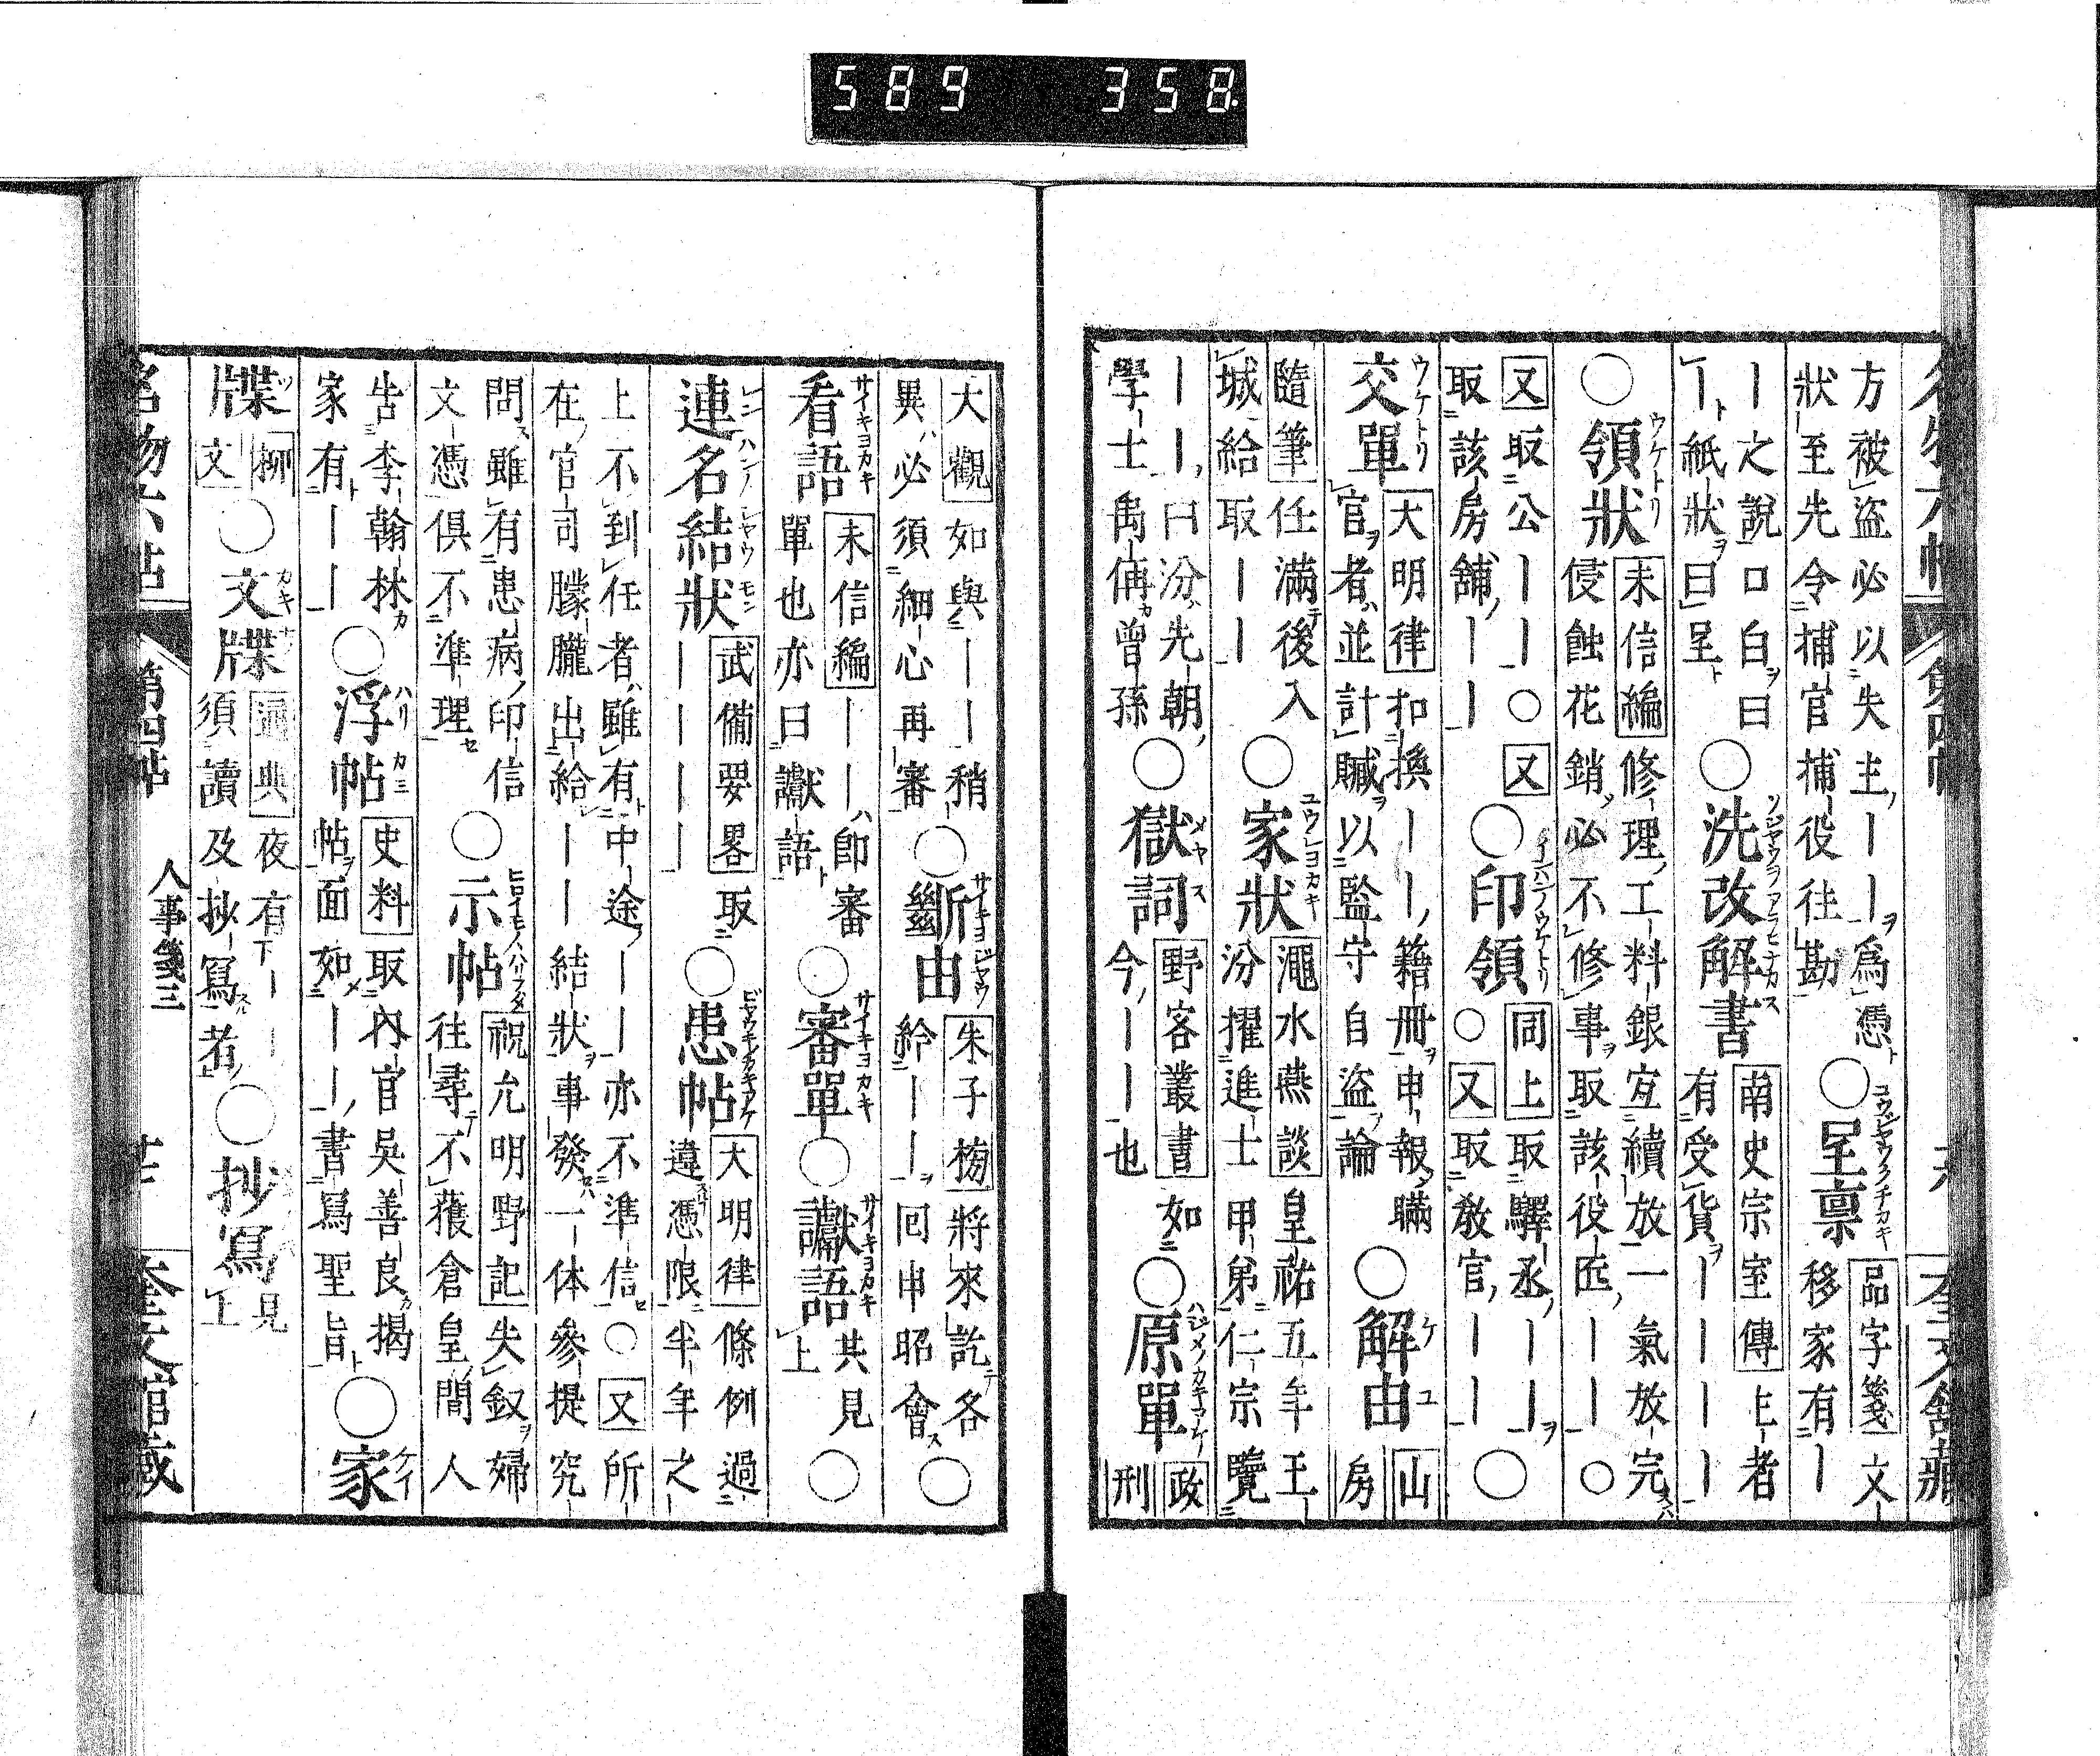 589 358
方被盗必以失主丨丨爲憑
狀至先令捕官捕役往勘
○呈禀 コウジヤウクチカキ
品字箋 文
移家有丨
丨之說口白曰
丨紙狀曰呈
○洗改解書
南史宗室傳 上者
有受貨丨丨丨丨
○領狀 ウケトリ
未信編 修理工料銀宜續放一氣放完
侵蝕花銷必不修事取該役匠丨丨○
又 取公丨丨○又
取該房舖丨丨
○印領
同上 取驛丞丨丨
○又 取教官丨丨
○
交單 ウケトリ
大明律 扣換丨丨籍冊申報瞞
官者並計贓以監守自盗論
○解由 ケユ
山房
隨筆 任滿後入
城給取丨丨
○家狀
澠水燕談 皇祐五年王
汾擢進士甲第仁宗覽
丨丨曰汾先朝
學士禹偁曾孫
○獄詞
野客叢書 如
今丨丨也
○原單
政刑
大觀 如與丨丨稍
異必須細心再審
○斷由
朱子 將來訖各
給丨丨囘申昭會
○
看語 サイキヨカキ
未信編 丨丨即審
單也亦曰讞語
○審單 サイキヨカキ
○讞語 サイキヨカキ
共見上
○
連名結狀
武備要畧 取
丨丨丨丨
○患帖
大明律 條例過
違憑限半年之
上不到任者雖有中途丨丨亦不準信○又 所
在官司朦朧出給丨丨結狀事發一体參提究
問雖有患病印信
文憑俱不準理
○示帖
祝允明野記 失釵婦
往尋不獲倉皇間人
告李翰林
家有丨丨
○浮帖 ハリカミ
史料 取內官吳善良揭
帖面如丨丨書寫聖旨
○家
牒
柳文
○文牒
通典 夜有丨丨
須讀及抄寫者
○抄寫
見上
名物六帖 第四帖 人事箋三 奎文館藏